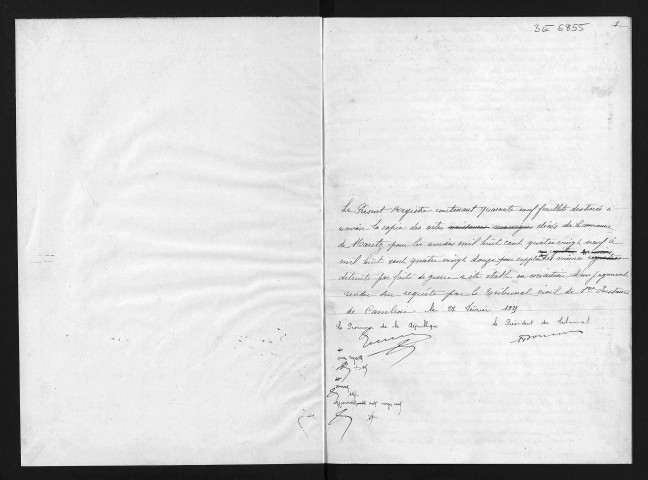 3E 6855
1
Le Présent Registre contenant quarante neuf feuillets destinés à
recevoir la copie des actes naissances mariages décès de la commune
de Maretz pour les années mil huit cent quatre vingt neuf à
mil huit cent quatre vingt douze pour suppléer minutes registres
détruits par faits de guerre a été établi en exécution d'un jugement
rendu sur requête par le Tribunal civil de 1ère Instance
de Cambrai le 24 février
Le Procureur de la République Le Président du Tribunal